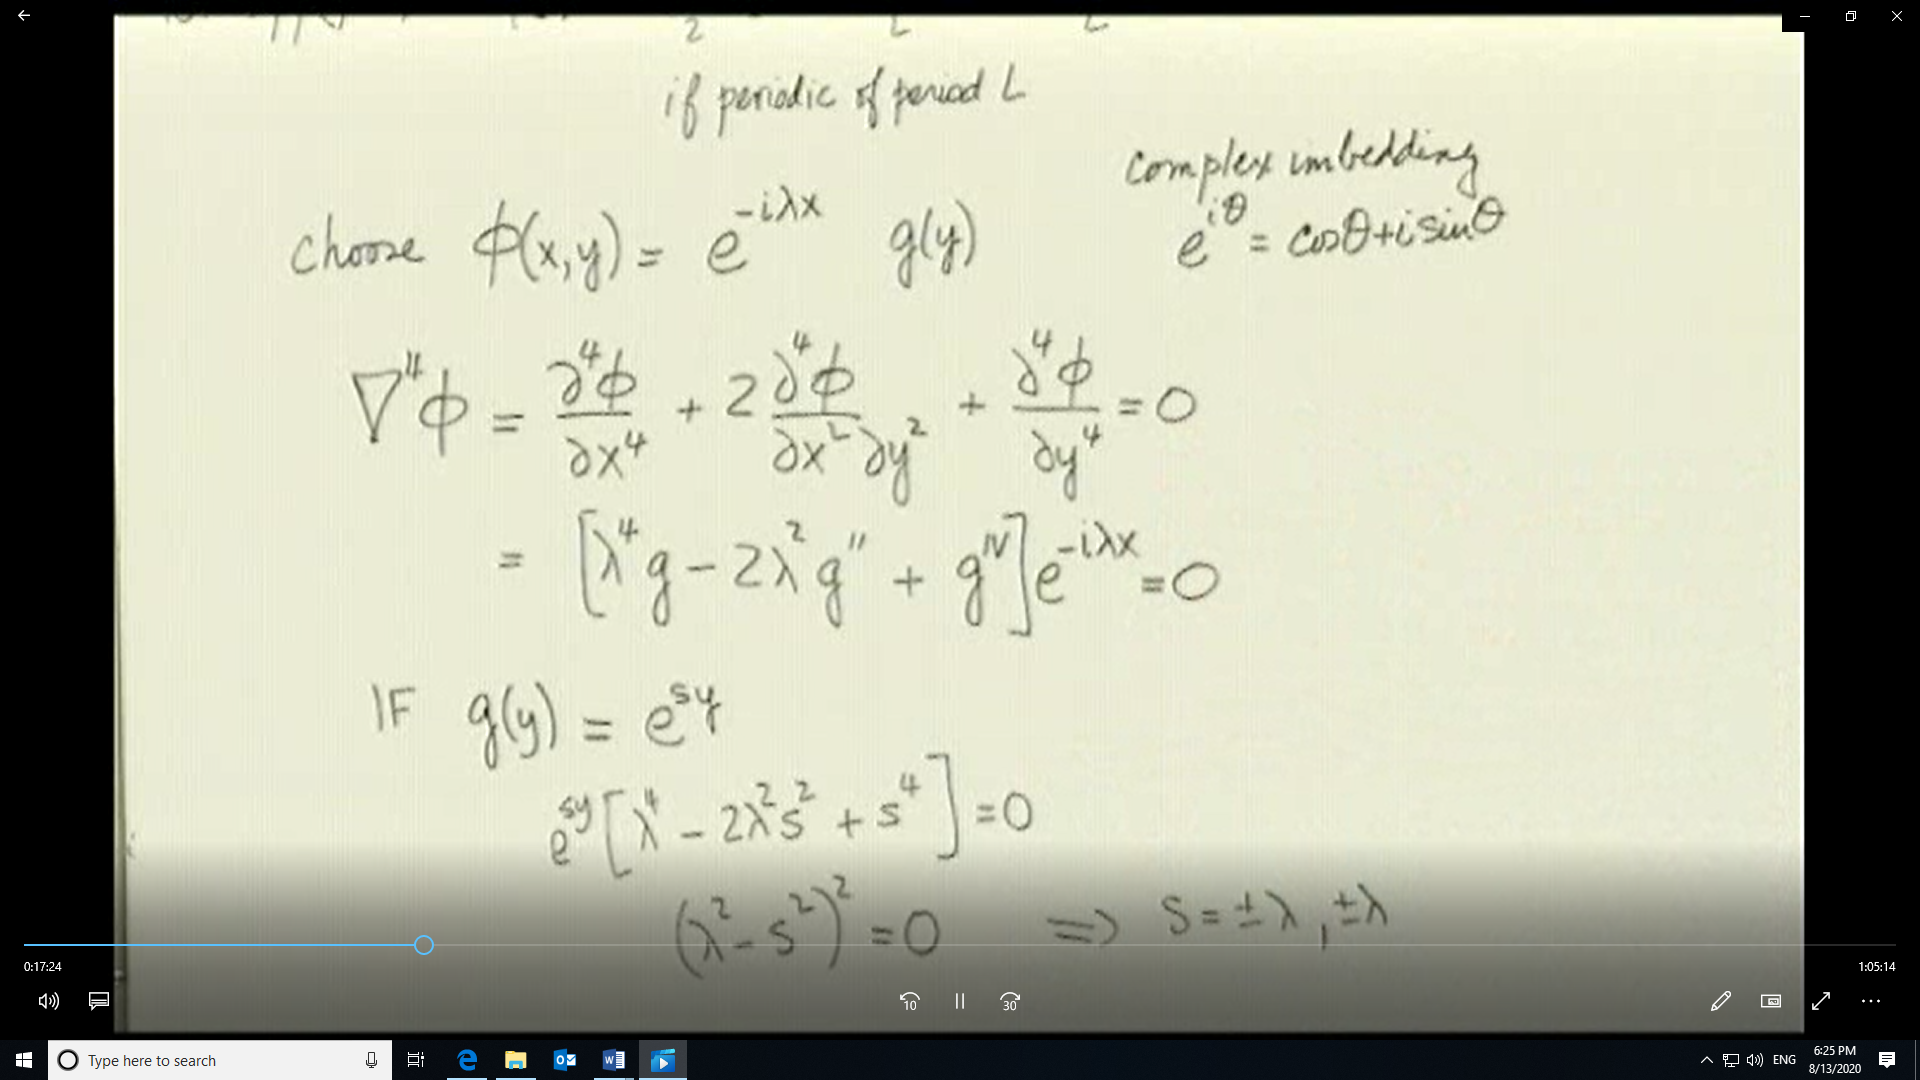 if periodic of period L
complex imbedding
choose ϕ(x,y) = e^{-iλx} g(y)
e^{iθ} = cosθ+i sinθ
∇⁴ϕ = ∂⁴ϕ/∂x⁴ + 2 ∂⁴ϕ/∂x²∂y² + ∂⁴ϕ/∂y⁴ = 0
= [λ⁴g - 2λ²g'' + g^{IV}] e^{-iλx} = 0
IF g(y) = e^{sy}
e^{sy} [λ⁴ - 2λ²s² + s⁴] = 0
(λ² - s²)² = 0 ⟹ s = ±λ, ±λ
0:17:24
1:05:14
10
30
Type here to search
ENG
6:25 PM
8/13/2020